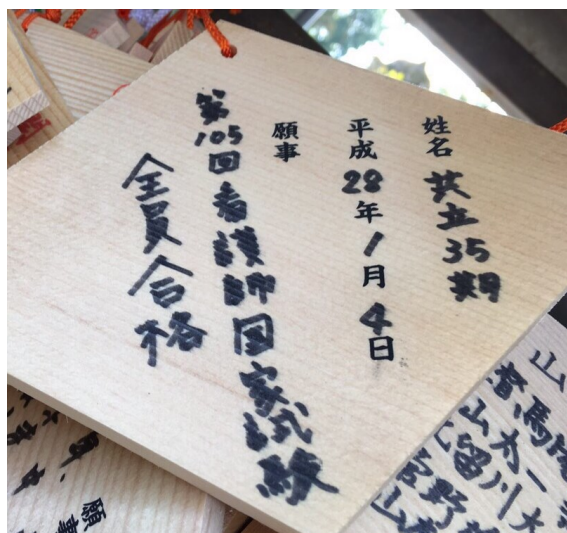 姓名 共立35期
平成28年1月4日
願事
第105回看護師国家試験
全員合格
山
督馬
山本一
留川大
宮野
山
願事